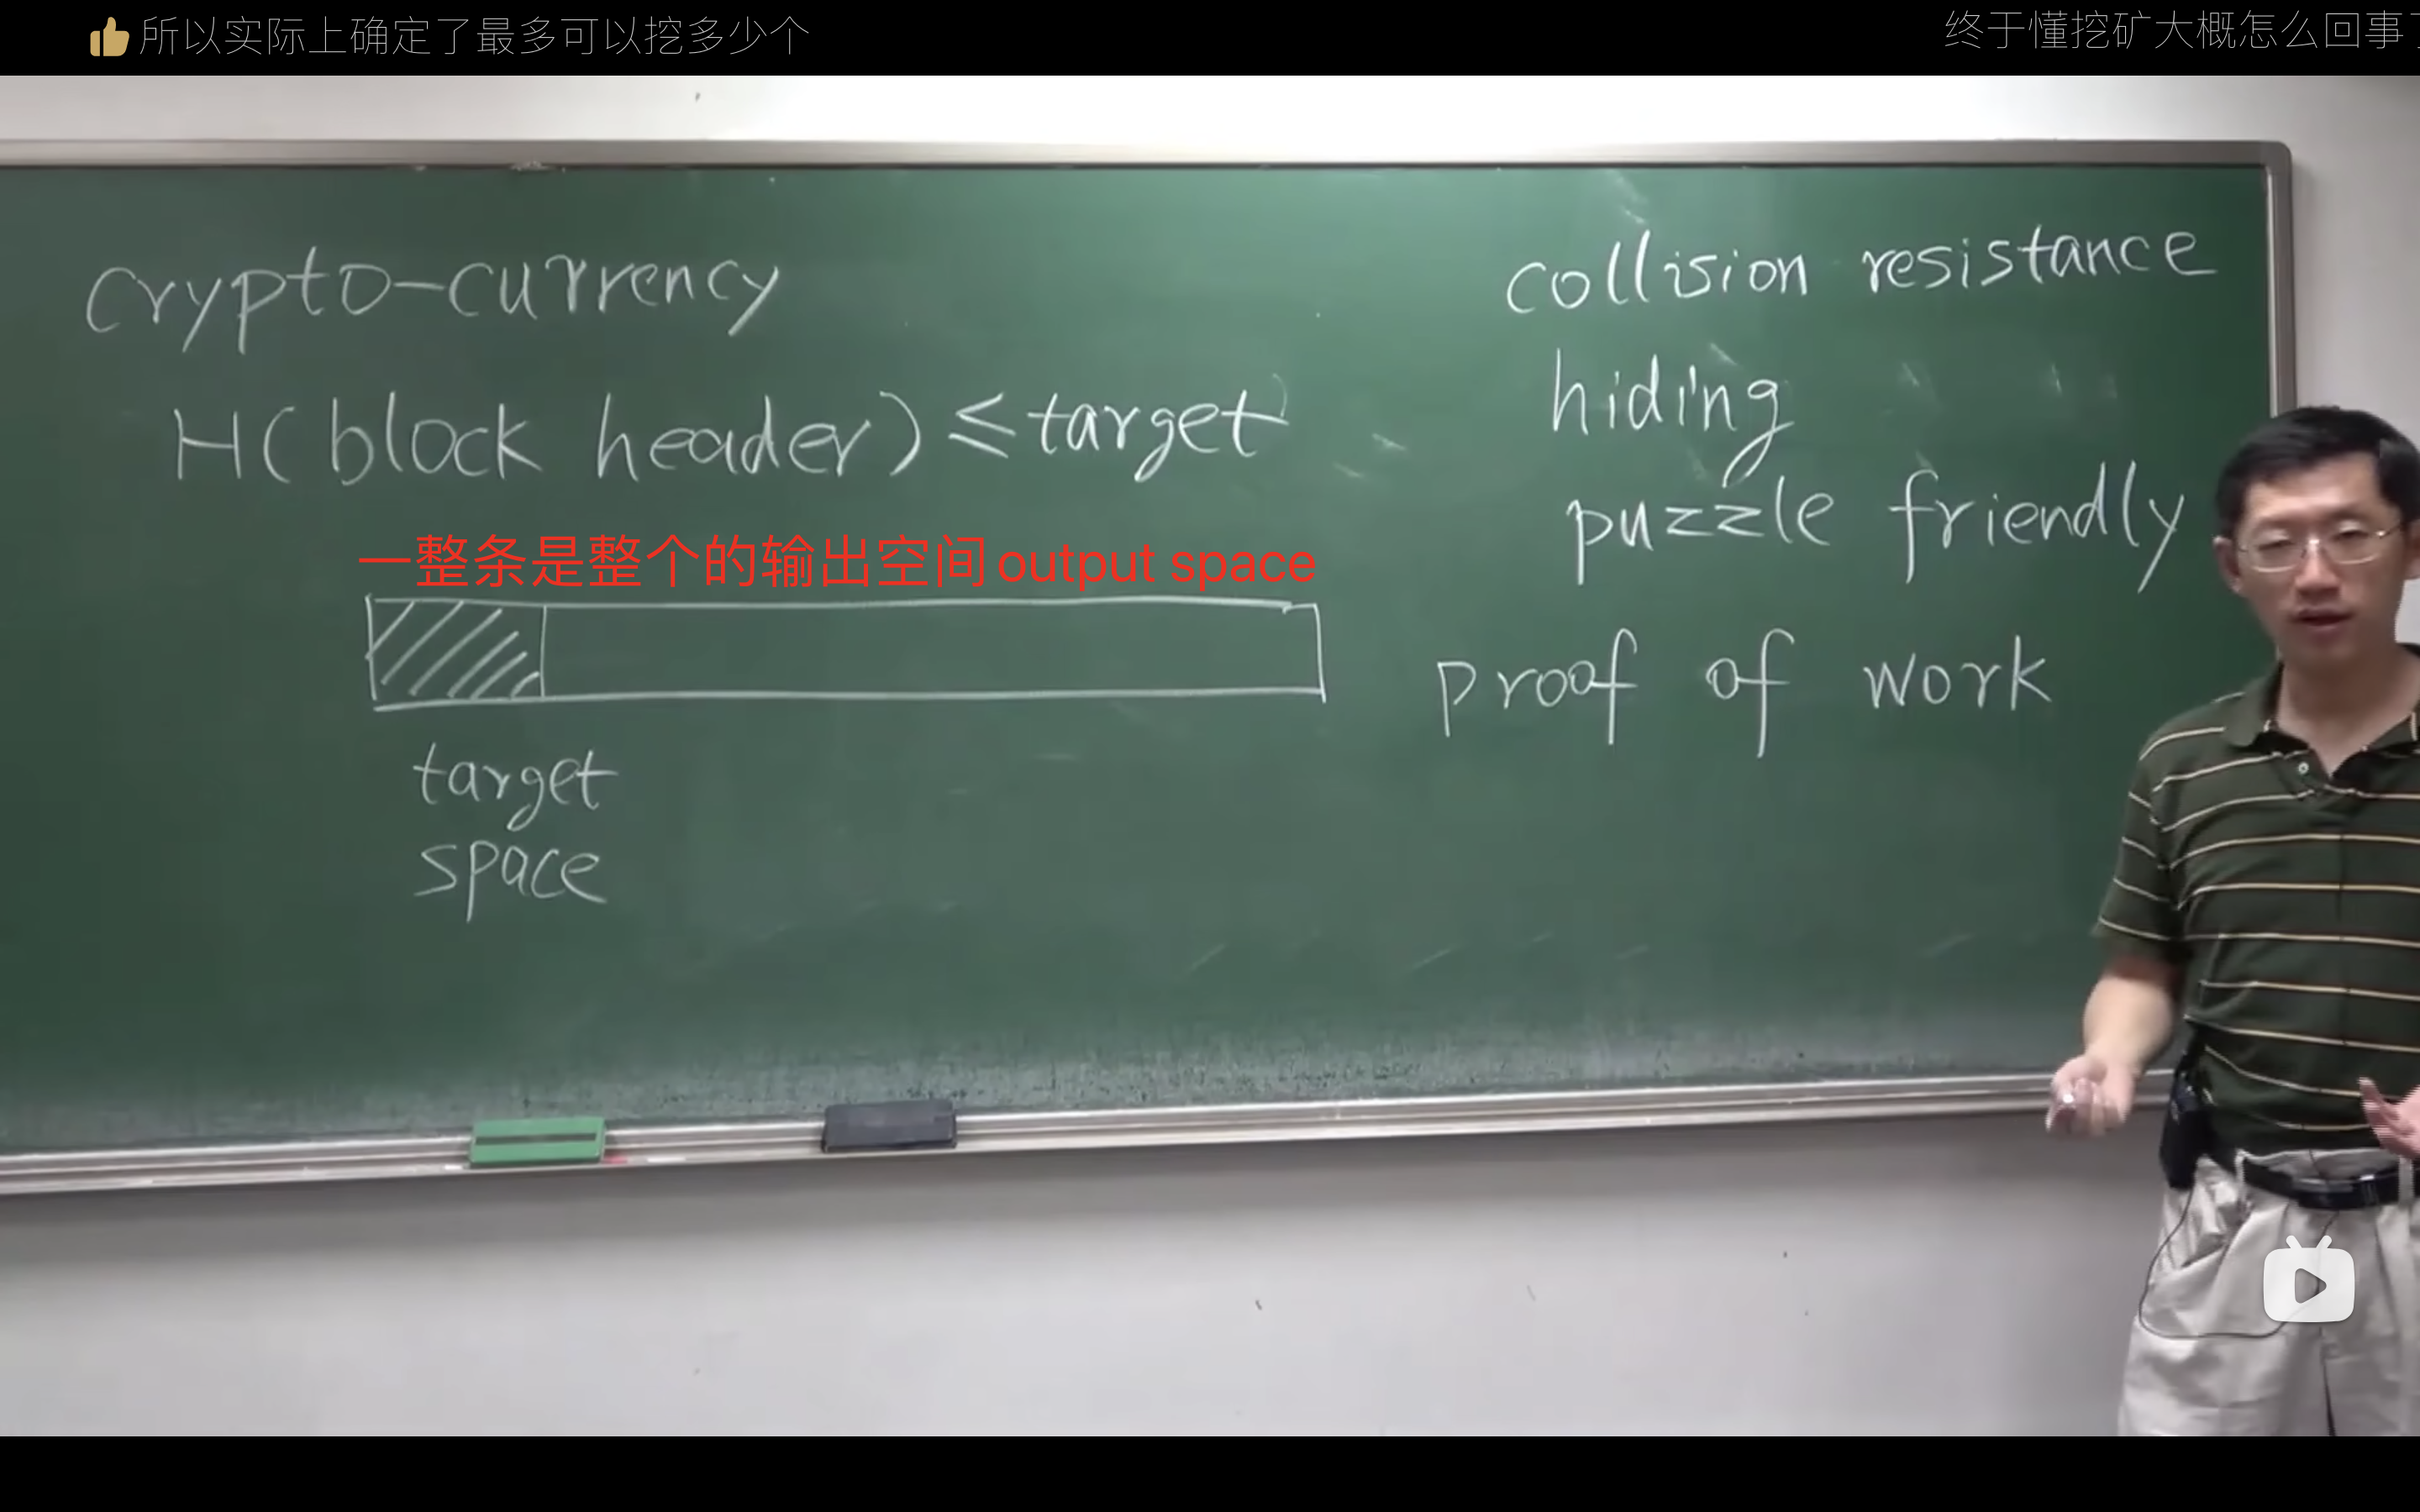 所以实际上确定了最多可以挖多少个
终于懂挖矿大概怎么回事
crypto-currency
H(block header) ≤ target
一整条是整个的输出空间output space
target
space
collision resistance
hiding
puzzle friendly
proof of work